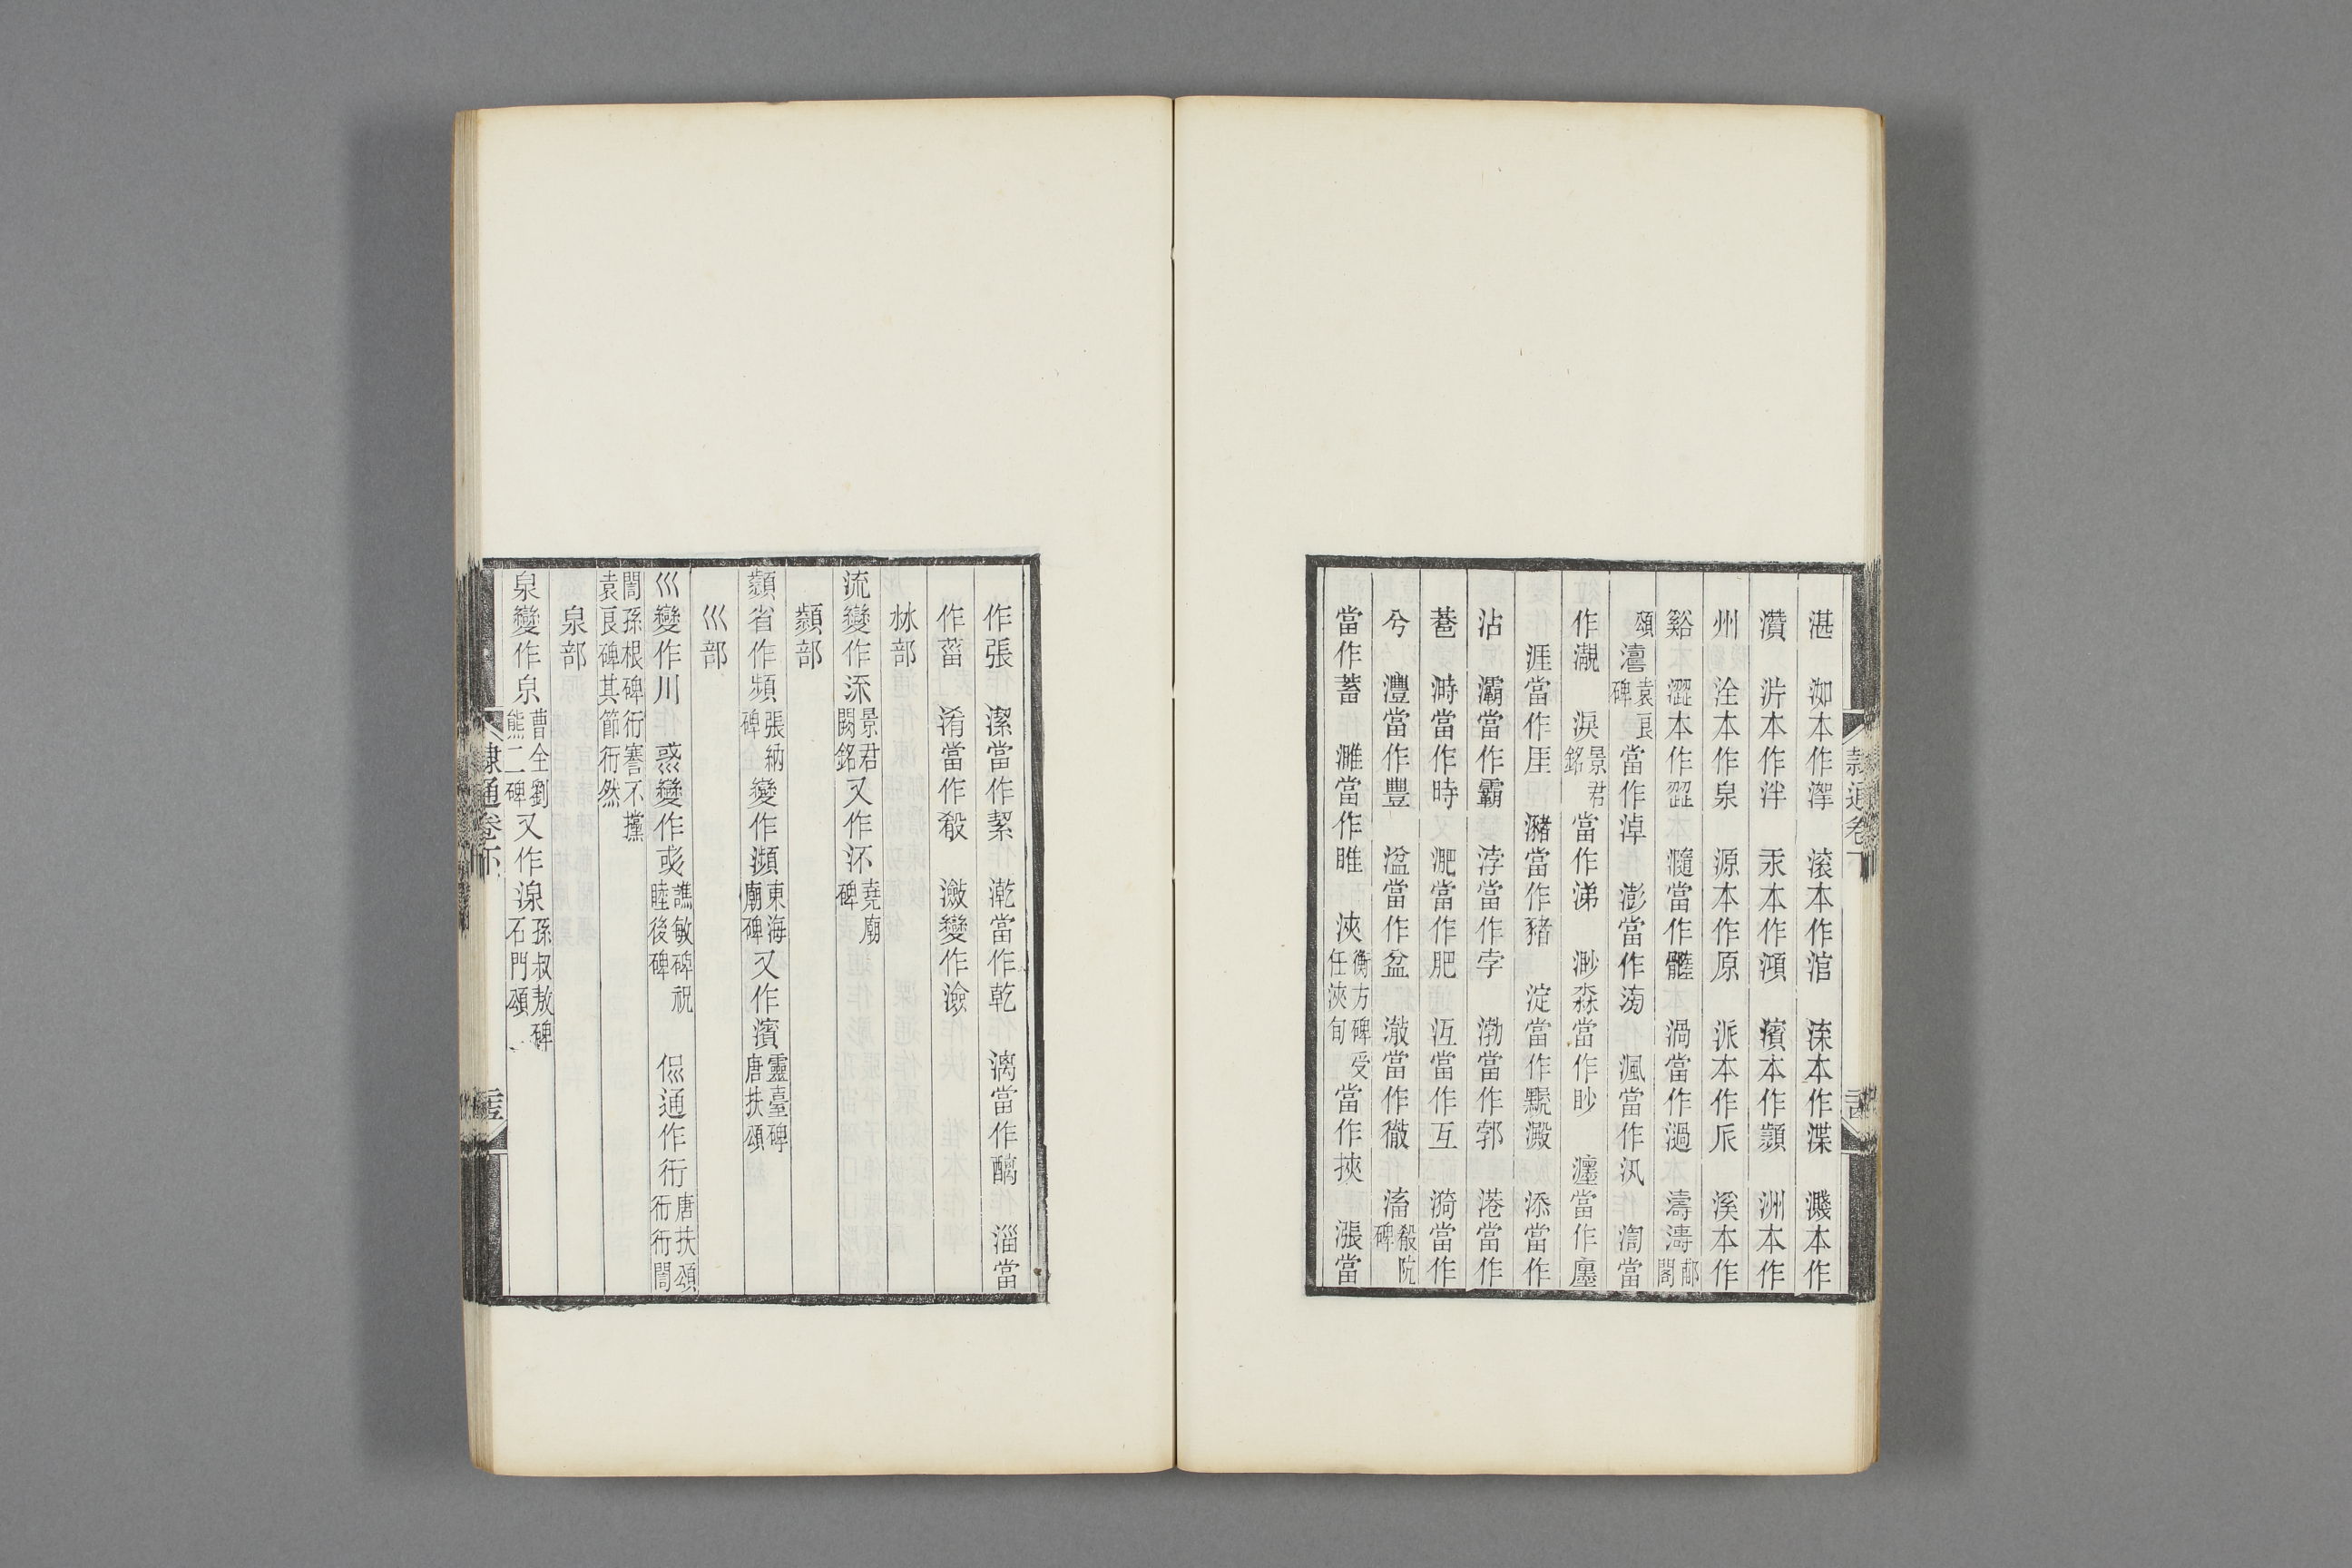 湛　洳本作澤　滚本作涫　渿本作渫　濺本作
灒　泮本作泮　汞本作澒　濱本作顥　洲本作
州　洤本作泉　源本作原　派本作𠂢　溪本作
谿　澀本作歰　瀡當作髓　渦當作濄　濤濤郙閣
頌　瀮袁良碑當作淖　澎當作滂　渢當作汎　渹當
作瀙　淚景君銘當作涕　渺淼當作眇　瀍當作廛
涯當作厓　瀦當作豬　淀當作黕澱　添當作
沾　灞當作霸　浡當作孛　渤當作郭　港當作
䔽　溡當作時　淝當作肥　沍當作互　漪當作
兮　灃當作豐　湓當作盆　澂當作徹　滀殽阬碑
當作蓄　濉當作睢　浹衡方碑受任浹旬當作挾　漲當
隸通卷下
作張　潔當作絜　漧當作乾　漓當作醨　淄當
作菑　淆當作殽　潋變作澰
沝部
流變作㳅景君闕銘又作汃堯廟碑
顰部
顰省作頻張納碑變作瀕東海廟碑又作濱靈臺碑唐扶頌
巛部
巛變作川　惑變作彧譙敏碑祝睦後碑　侃通作衎唐扶頌衎衎誾
誾孫根碑衎謇不攩袁良碑其節衎然
泉部
泉變作𣳾曹全劉熊二碑又作湶孫叔敖碑石門頌
隸通卷下